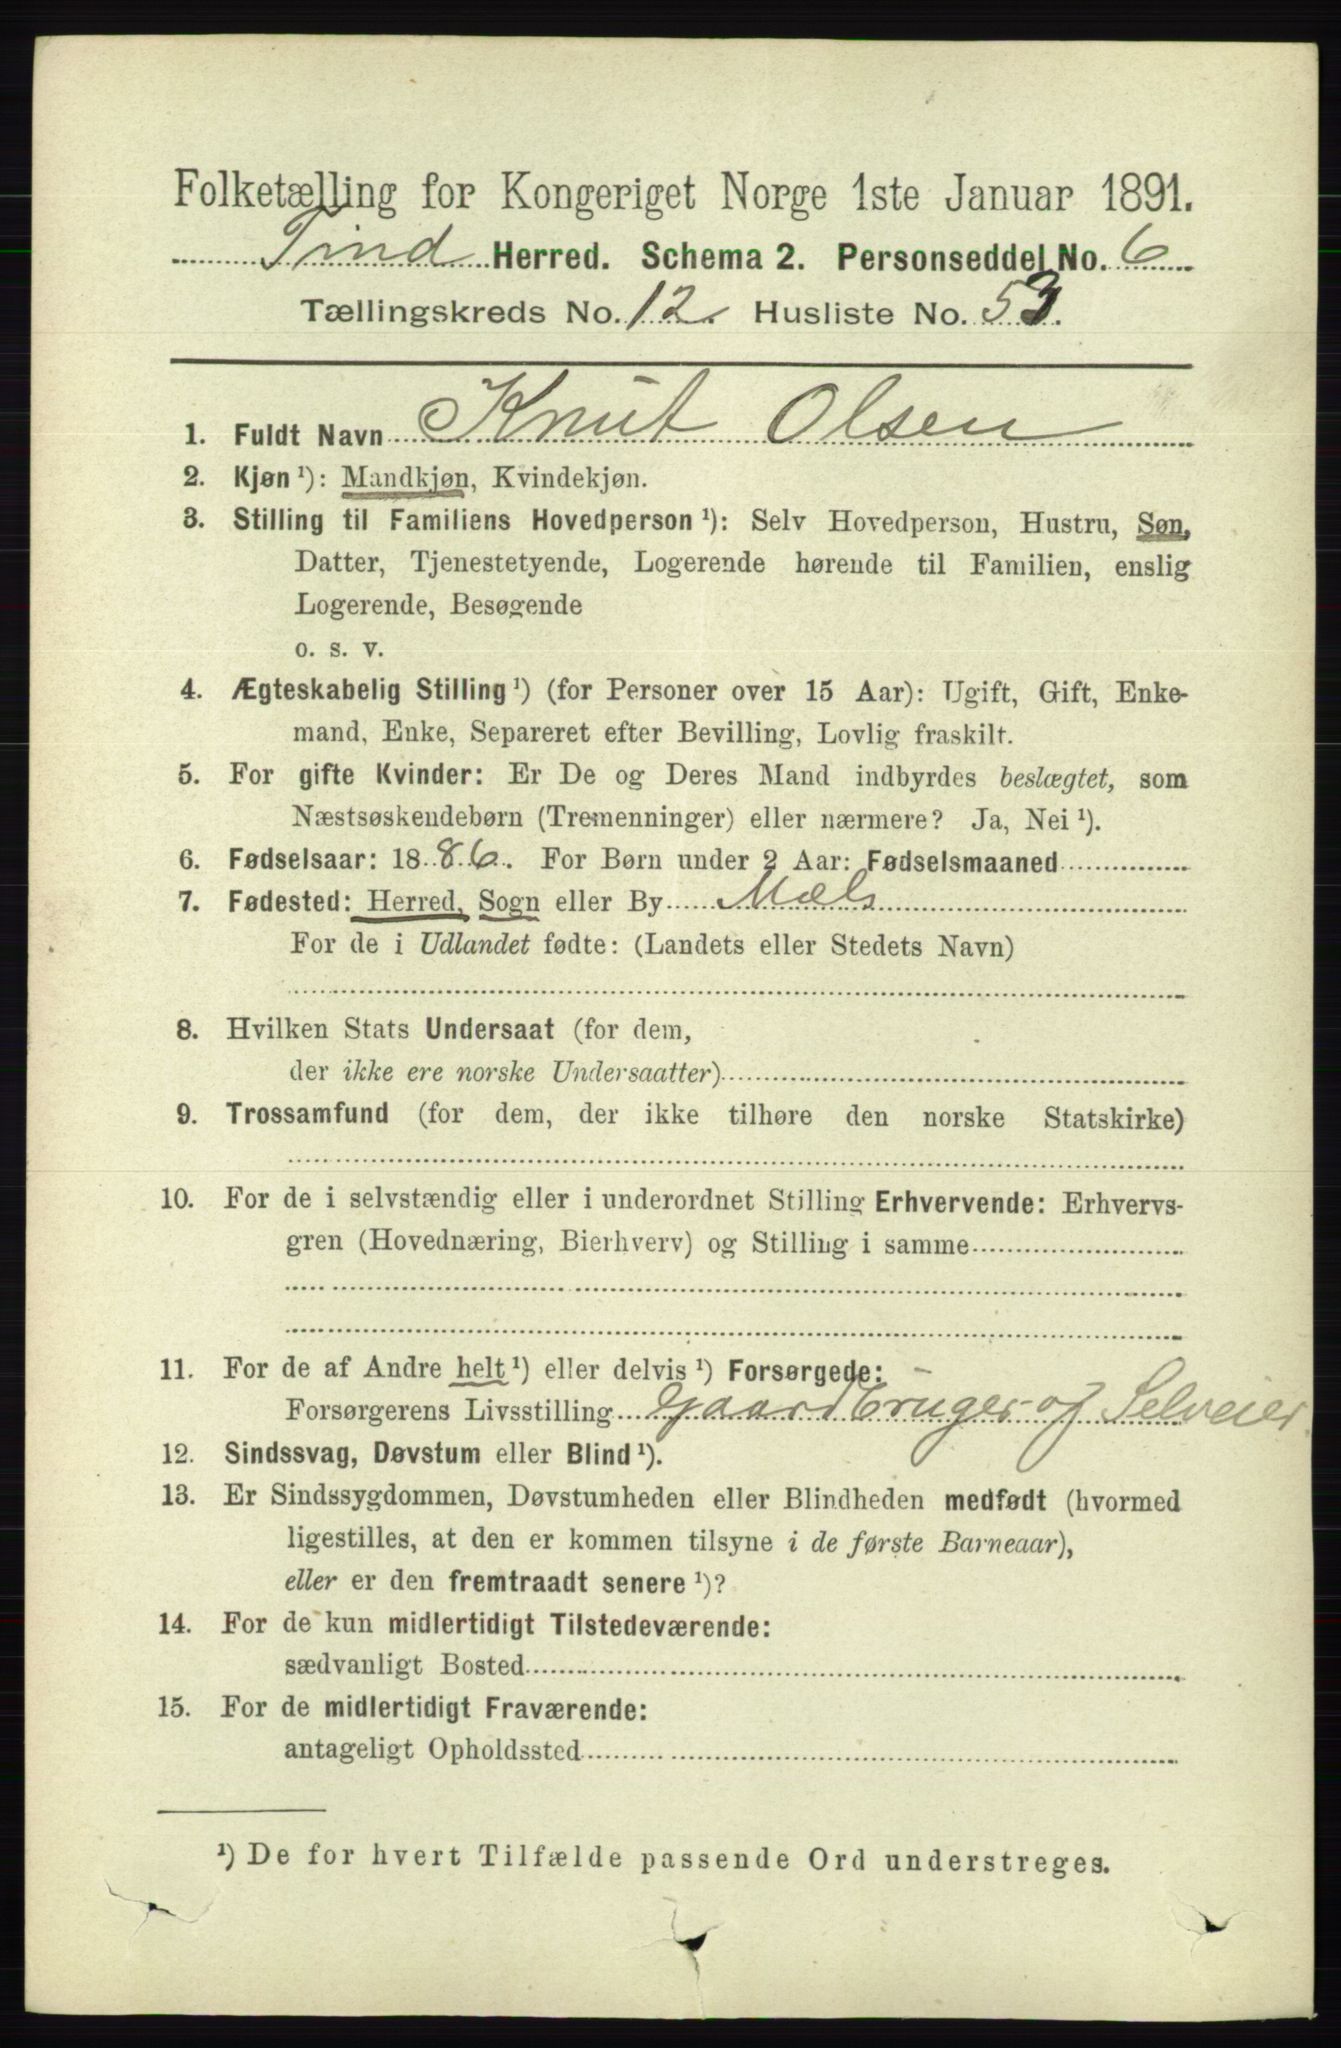 Folketælling for Kongeriget Norge 1ste Januar 1891.
Tind Herred. Schema 2. Personseddel No. 6
Tællingskreds No. 12. Husliste No. 53.
1. Fuldt Navn Knut Olsen
2. Kjøn ¹): Mandkjøn, Kvindekjøn.
3. Stilling til Familiens Hovedperson ¹): Selv Hovedperson, Hustru, Søn,
Datter, Tjenestetyende, Logerende hørende til Familien, enslig
Logerende, Besøgende
o. s. v.
4. Ægteskabelig Stilling ¹) (for Personer over 15 Aar): Ugift, Gift, Enke-
mand, Enke, Separeret efter Bevilling, Lovlig fraskilt.
5. For gifte Kvinder: Er De og Deres Mand indbyrdes beslægtet, som
Næstsøskendebørn (Tremenninger) eller nærmere? Ja, Nei ¹).
6. Fødselsaar: 1886. For Børn under 2 Aar: Fødselsmaaned
7. Fødested: Herred, Sogn eller By Mæls
For de i Udlandet fødte: (Landets eller Stedets Navn)
8. Hvilken Stats Undersaat (for dem,
der ikke ere norske Undersaatter)
9. Trossamfund (for dem, der ikke tilhøre den norske Statskirke)
10. For de i selvstændig eller i underordnet Stilling Erhvervende: Erhvervs-
gren (Hovednæring, Bierhverv) og Stilling i samme
11. For de af Andre helt ¹) eller delvis ¹) Forsørgede:
Forsørgerens Livsstilling Gaardbruger of Selveier
12. Sindssvag, Døvstum eller Blind ¹).
13. Er Sindssygdommen, Døvstumheden eller Blindheden medfødt (hvormed
ligestilles, at den er kommen tilsyne i de første Barneaar),
eller er den fremtraadt senere ¹)?
14. For de kun midlertidigt Tilstedeværende:
sædvanligt Bosted
15. For de midlertidigt Fraværende:
antageligt Opholdssted
¹) De for hvert Tilfælde passende Ord understreges.